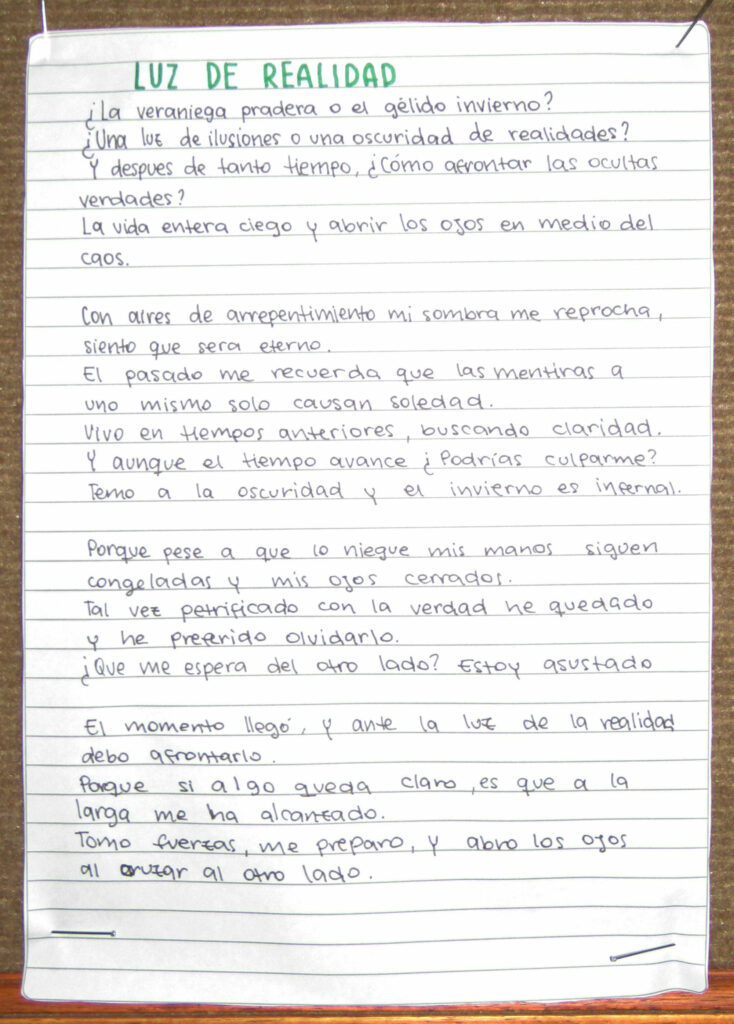 LUZ DE REALIDAD
¿La veraniega pradera o el gélido invierno?
¿Una luz de ilusiones o una oscuridad de realidades?
Y despues de tanto tiempo, ¿Cómo afrontar las ocultas
verdades?
La vida entera ciego y abrir los ojos en medio del
caos.
Con aires de arrepentimiento mi sombra me reprocha,
siento que sera eterno.
El pasado me recuerda que las mentiras a
uno mismo solo causan soledad.
Vivo en tiempos anteriores, buscando claridad.
Y aunque el tiempo avance ¿Podrías culparme?
Temo a la oscuridad y el invierno es infernal.
Porque pese a que lo niegue mis manos siguen
congeladas y mis ojos cerrados.
Tal vez petrificado con la verdad he quedado
y he preferido olvidarlo.
¿Que me espera del otro lado? Estoy asustado
El momento llegó, y ante la luz de la realidad
debo afrontarlo.
Porque si algo queda claro, es que a la
larga me ha alcanzado.
Tomo fuerzas, me preparo, y abro los ojos
al cruzar al otro lado.